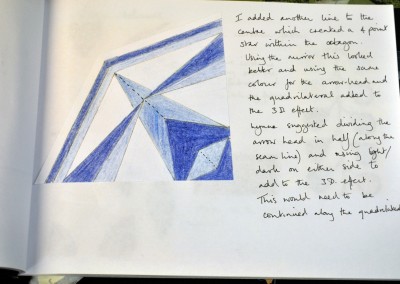 I added another line to the
centre which created a 4 point
star within the octagon.
Using the mirror this looked
better and using the same
colour for the arrow-head and
the quadrilateral added to
the 3D effect.
Lynne suggested dividing the
arrow head in half (along the
seam line) and using light/
dark on either side to
add to the 3D effect.
This would need to be
continued along the quadrilateral